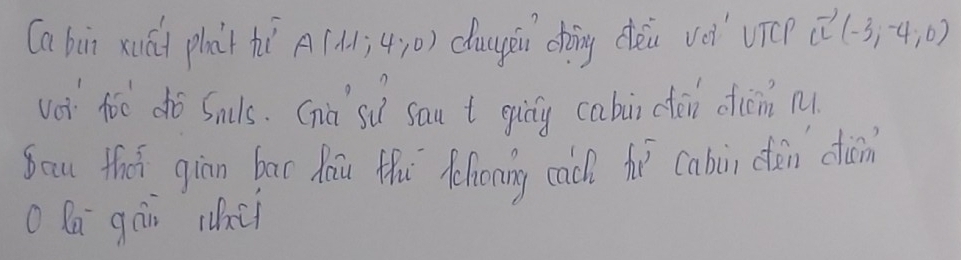 Ca bin xuất phát từ A(11; 4; 0) chuyển động đều với VTCP u⃗(-3; -4; 0)
với tốc độ 5m/s. Giả sử sau t giây cabin đến điểm M.
Sau thời gian bao lâu thì khoảng cách từ cabin đến điểm
O là gần nhất